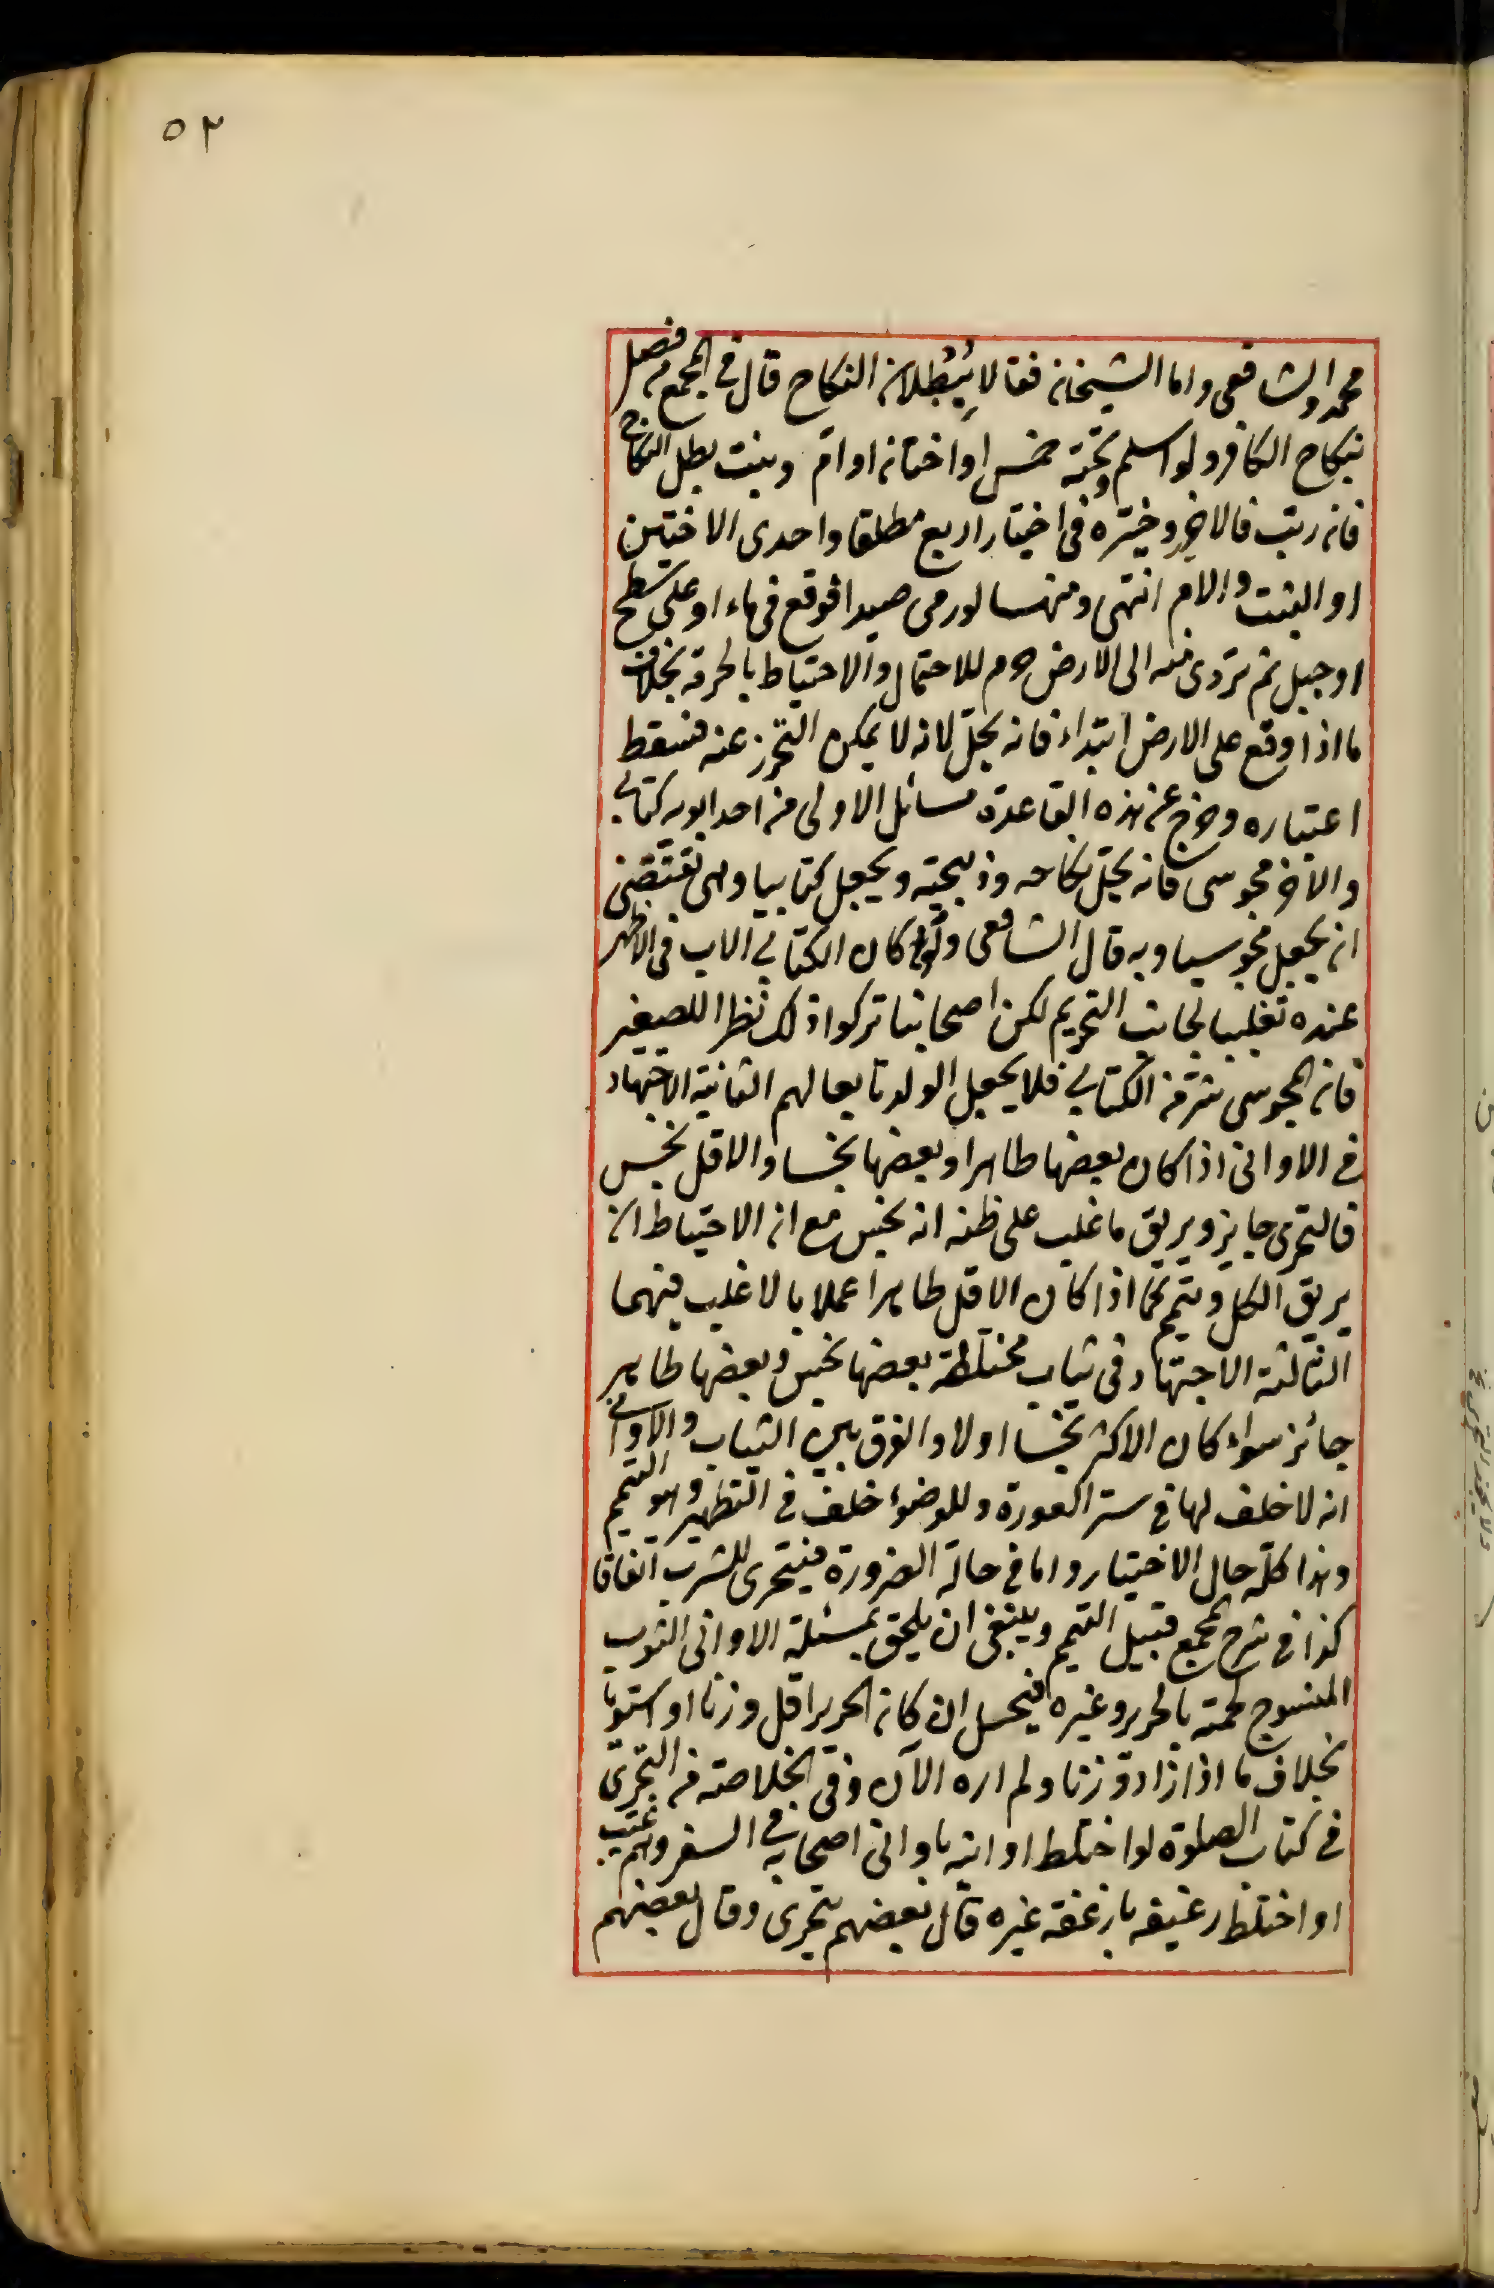 ٥٢
محمد والشافعي واما الشيخان فقالا يبطلان النكاح قال في المجمع من فصل
نكاح الكافر ولو اسلم وتحته خمس او اختان او ام وبنت بطل النكاح
فان رتب فالاخر وخيره في اختيار اربع مطلقا واحدى الاختين
او البنت والام انتهى ومنها لو رمى صيدا فوقع في ماء او على سطح
او جبل ثم تردى منه الى الارض حرم للاحتمال والاحتياط بالحرمة بخلاف
ما اذا وقع على الارض ابتداء فانه يحل لانه لا يمكن التحرز عنه فسقط
اعتباره وخرج عن هذه القاعدة مسائل الاولى من احد ابويه كتابي
والآخر مجوسي فانه يحل نكاحه وذبيحته ويجعل كتابيا وهى تقتضى
ان يجعل مجوسيا وبه قال الشافعى ولو كان الكتابي الاب في الاظهر
عنده تغليبا لجانب التحريم لكن اصحابنا تركوا ذلك نظرا للصغير
فان المجوسى شر من الكتابي فلا يجعل الولد تابعا لهم الثانية الاجتهاد
في الاواني اذا كان بعضها طاهرا وبعضها نجسا والاقل نجس
فالتحرى جايز ويريق ما غلب على ظنه انه نجس مع ان الاحتياط ان
يريق الكل ويتيمم كما اذا كان الاقل طاهرا عملا بالاغلب فيهما
الثالثة الاجتهاد في ثياب مختلطة بعضها نجس وبعضها طاهر
جائز سواء كان الاكثر نجسا اولا والفرق بين الثياب والاواني
انه لا خلف لها في ستر العورة وللوضوء خلف في التطهير وهو التيمم
وهذا كله حال الاختيار واما في حالة الضرورة فيتحرى للشرب اتفاقا
كذا في شرح المجمع قبيل التيمم وينبغي ان يلحق بمسئلة الاوانى الثوب
المنسوج لحمته بالحرير وغيره فيحل ان كان الحرير اقل وزنا او استويا
بخلاف ما اذا زاد وزنا ولم اره الآن وفي الخلاصة من التحرى
في كتاب الصلوة لو اختلط اوانيه باوانى اصحابه في السفر وهم غيب
او اختلط رغيفه بارغفة غيره قال بعضهم يتحرى وقال بعضهم